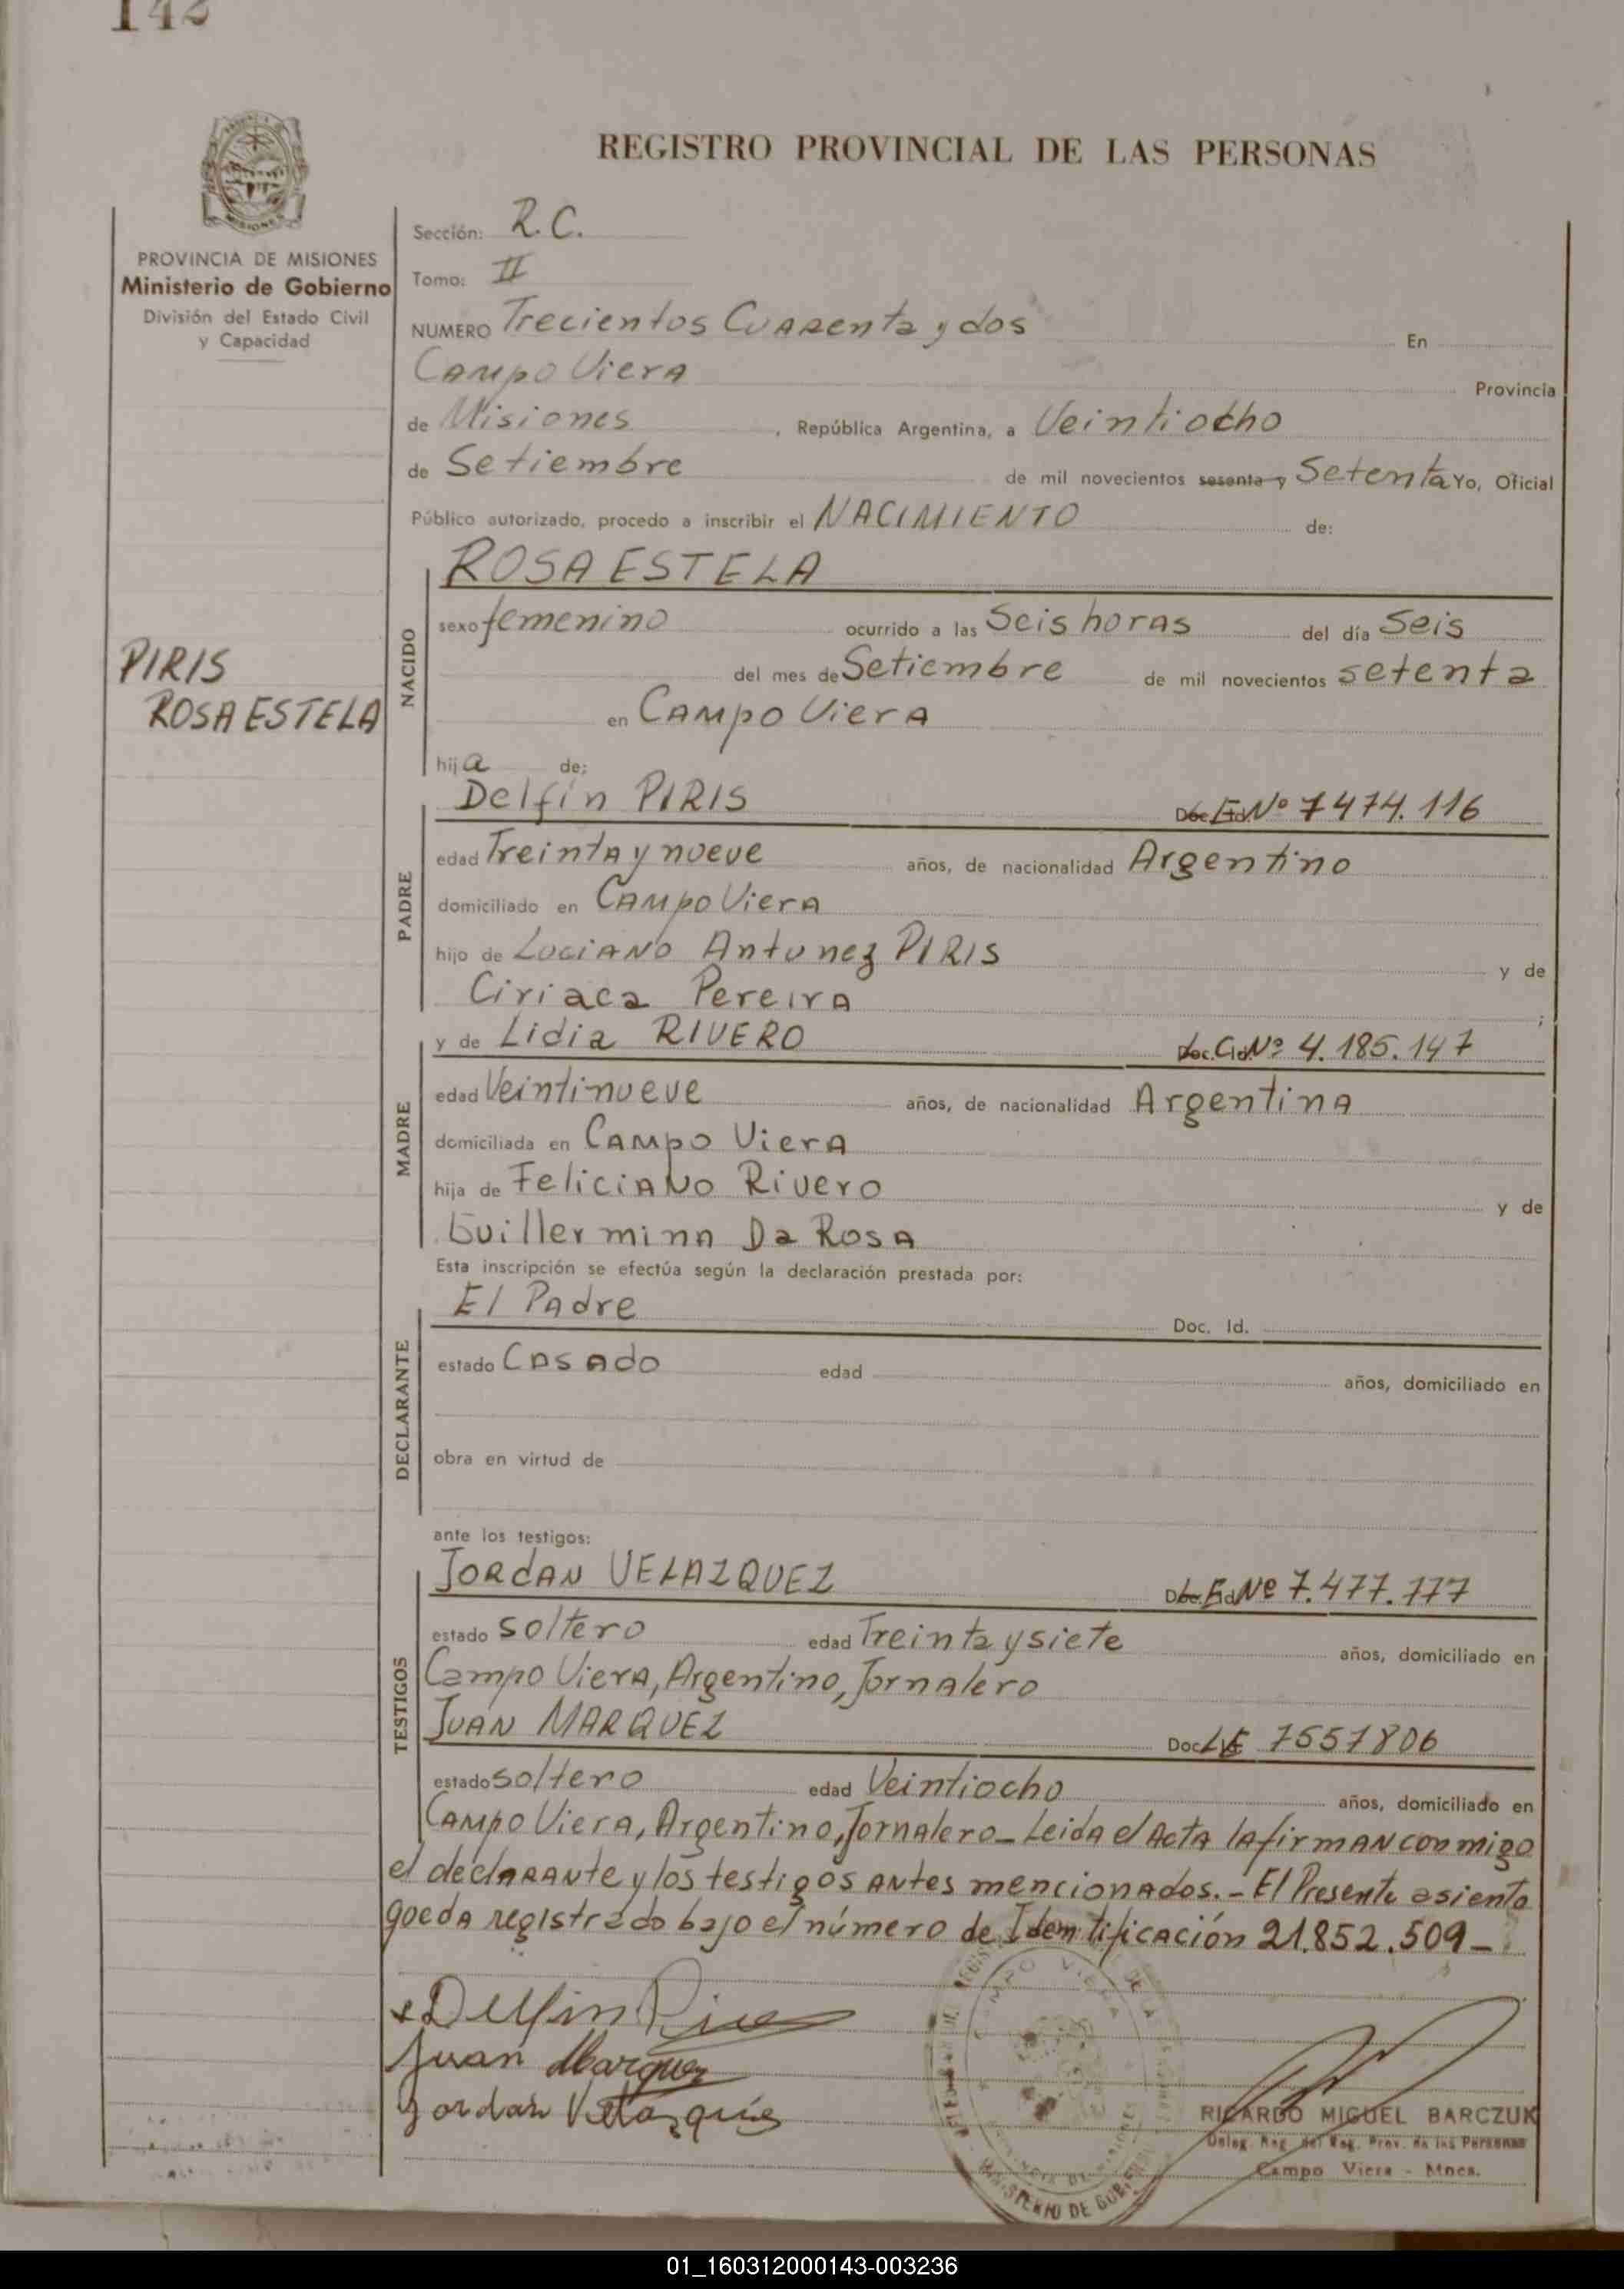 142
REGISTRO PROVINCIAL DE LAS PERSONAS
MISIONES
PROVINCIA DE MISIONES
Ministerio de Gobierno
División del Estado Civil
y Capacidad
Sección: R.C.
Tomo: II
NUMERO Trecientos Cuarenta y dos En
Campo Viera Provincia
de Misiones, República Argentina, a Veintiocho
de Setiembre de mil novecientos sesenta y Setenta Yo, Oficial
Público autorizado, procedo a inscribir el NACIMIENTO de:
PIRIS
ROSA ESTELA
NACIDO
ROSA ESTELA
sexo femenino ocurrido a las Seis horas del día Seis
del mes de Setiembre de mil novecientos setenta
en Campo Viera
hija de:
PADRE
Delfín PIRIS Nº 7474.116
edad Treinta y nueve años, de nacionalidad Argentino
domiciliado en Campo Viera
hijo de Luciano Antunez PIRIS y de
Ciriaca Pereira;
MADRE
y de Lidia RIVERO Nº 4.185.147
edad Veintinueve años, de nacionalidad Argentina
domiciliada en Campo Viera
hija de Feliciano Rivero y de
Guillermina Da Rosa
Esta inscripción se efectúa según la declaración prestada por:
DECLARANTE
El Padre Doc. Id.
estado Casado edad años, domiciliado en
obra en virtud de
ante los testigos:
TESTIGOS
JORdAN VELAZQUEZ Nº 7.477.777
estado soltero edad Treinta y siete años, domiciliado en
Campo Viera, Argentino, Jornalero
JUAN MARQUEZ Doc LE 7557806
estado soltero edad Veintiocho años, domiciliado en
Campo Viera, Argentino, Jornalero_Leida el Acta la firman conmigo
el declarante y los testigos antes mencionados.- El Presente asiento
queda registrado bajo el número de Identificación 21.852.509_
Delfin Piris
Juan Marquez
Jordan
CAMPO VIERA
MINISTERIO DE GOBIERNO
RICARDO MIGUEL BARCZUK
Deleg. Reg. del Reg. Prov. de las Personas
Campo Viera - Mnes.
01_160312000143-003236